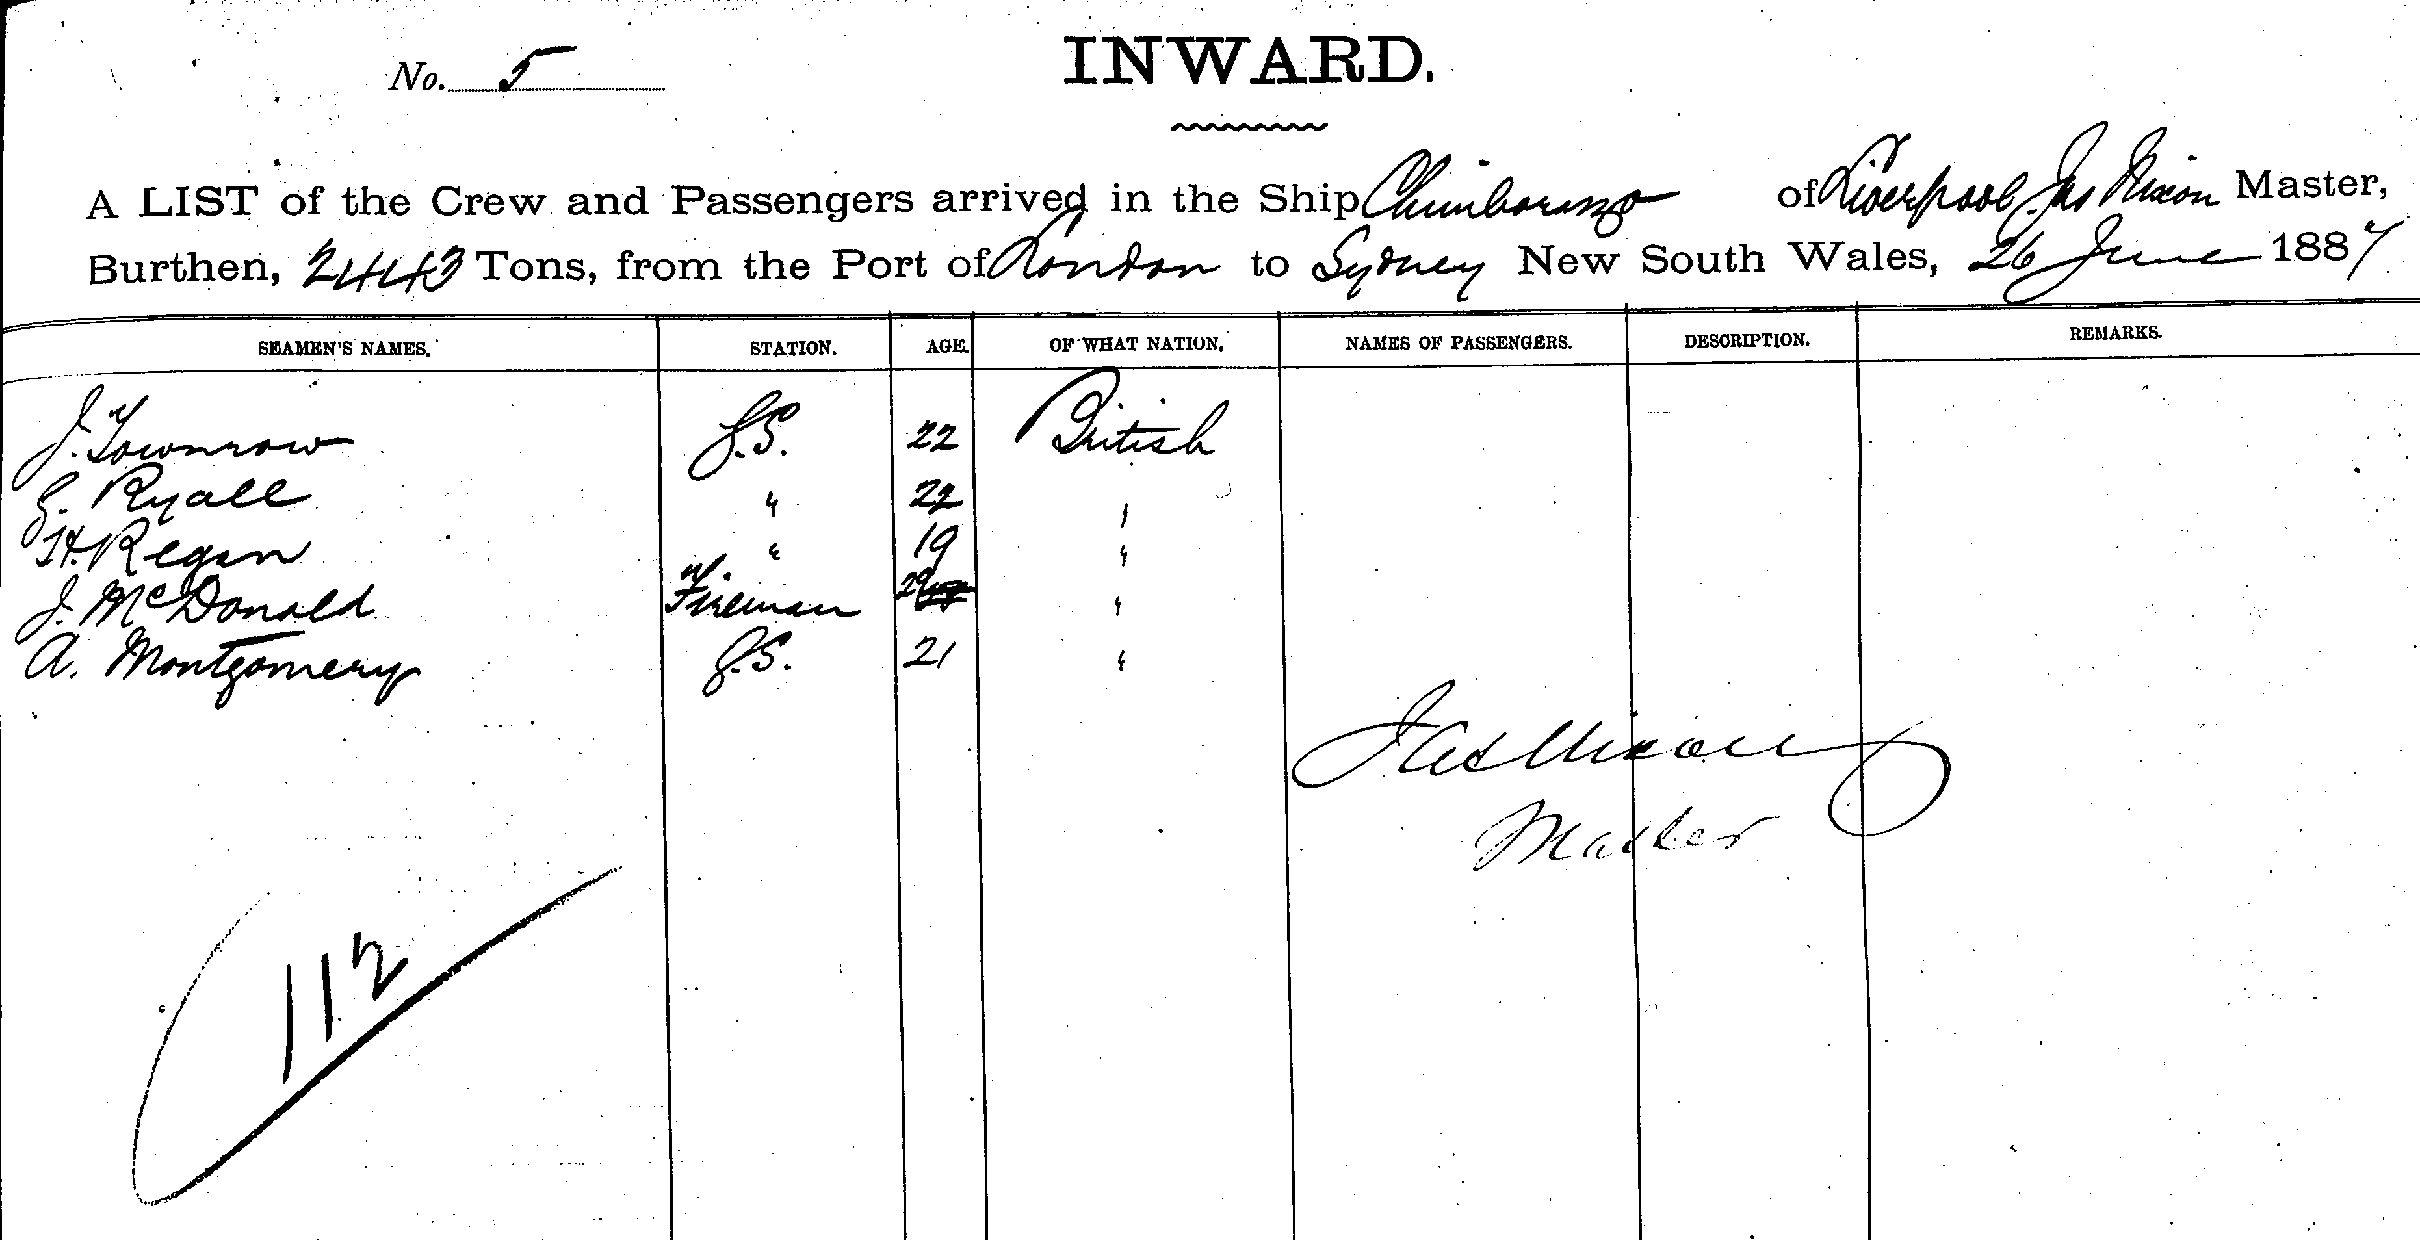 No. 5
INWARD.
A LIST of the Crew and Passengers arrived in the Ship Chimborazo of Liverpool, Jas Nixon Master,
Burthen, 2443 Tons, from the Port of London to Sydney New South Wales, 26 June 1887
SEAMEN'S NAMES. STATION. AGE. OF WHAT NATION. NAMES OF PASSENGERS. DESCRIPTION. REMARKS.
J. Townrow G.S. 22 British
G. Ryall " 22 "
H. Regan " 19 "
J. McDonald Fireman 29 "
A. Montgomery G.S. 21 "
Jas Nixon
Master
112